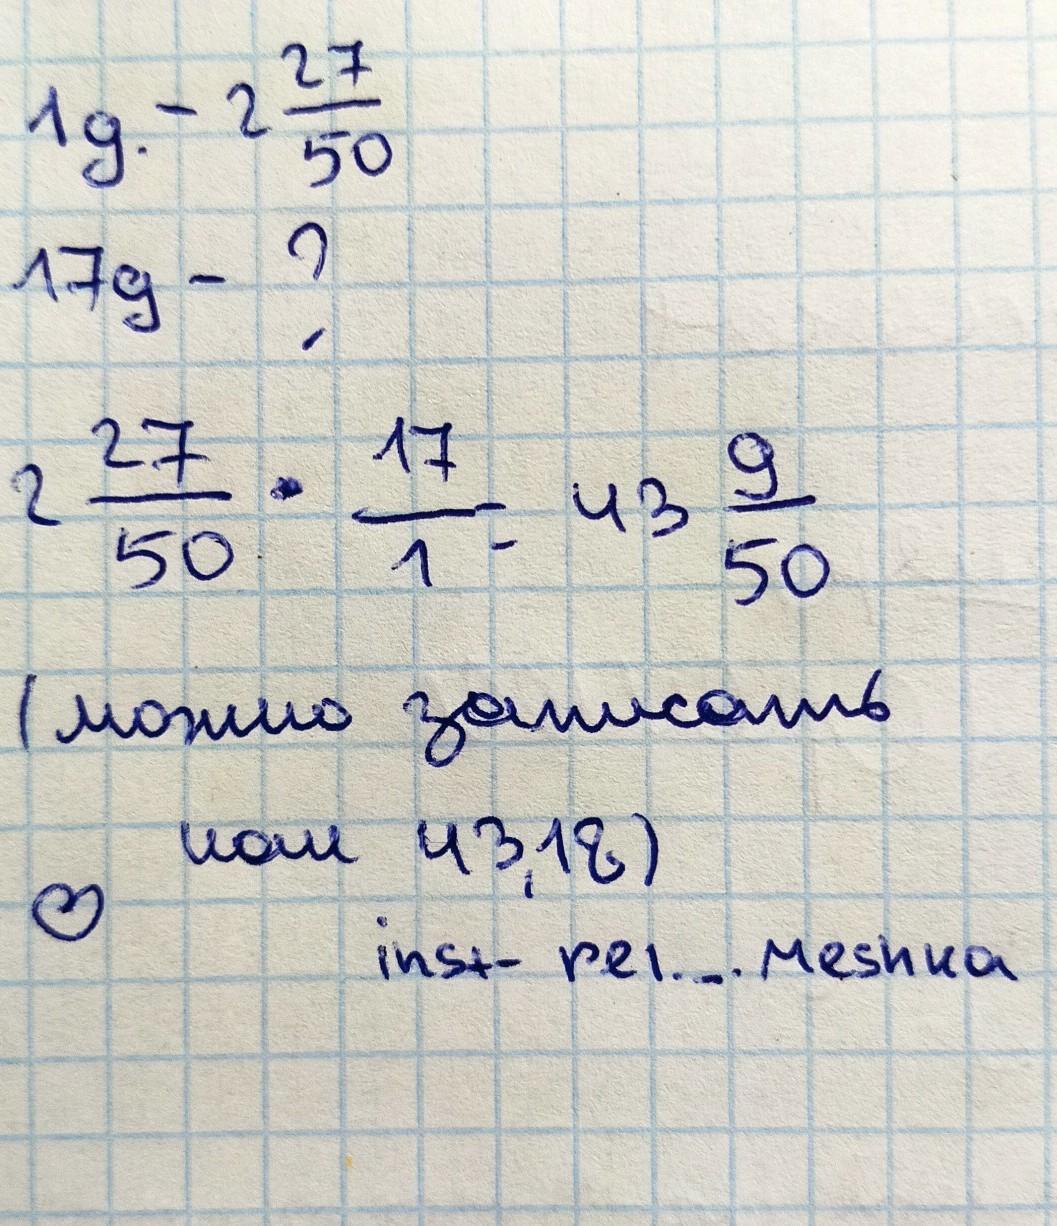 1g. - 2 27/50
17g - ?
2 27/50 · 17/1 = 43 9/50
(можно записать
как 43,18)
♡
inst- pel._. meshka